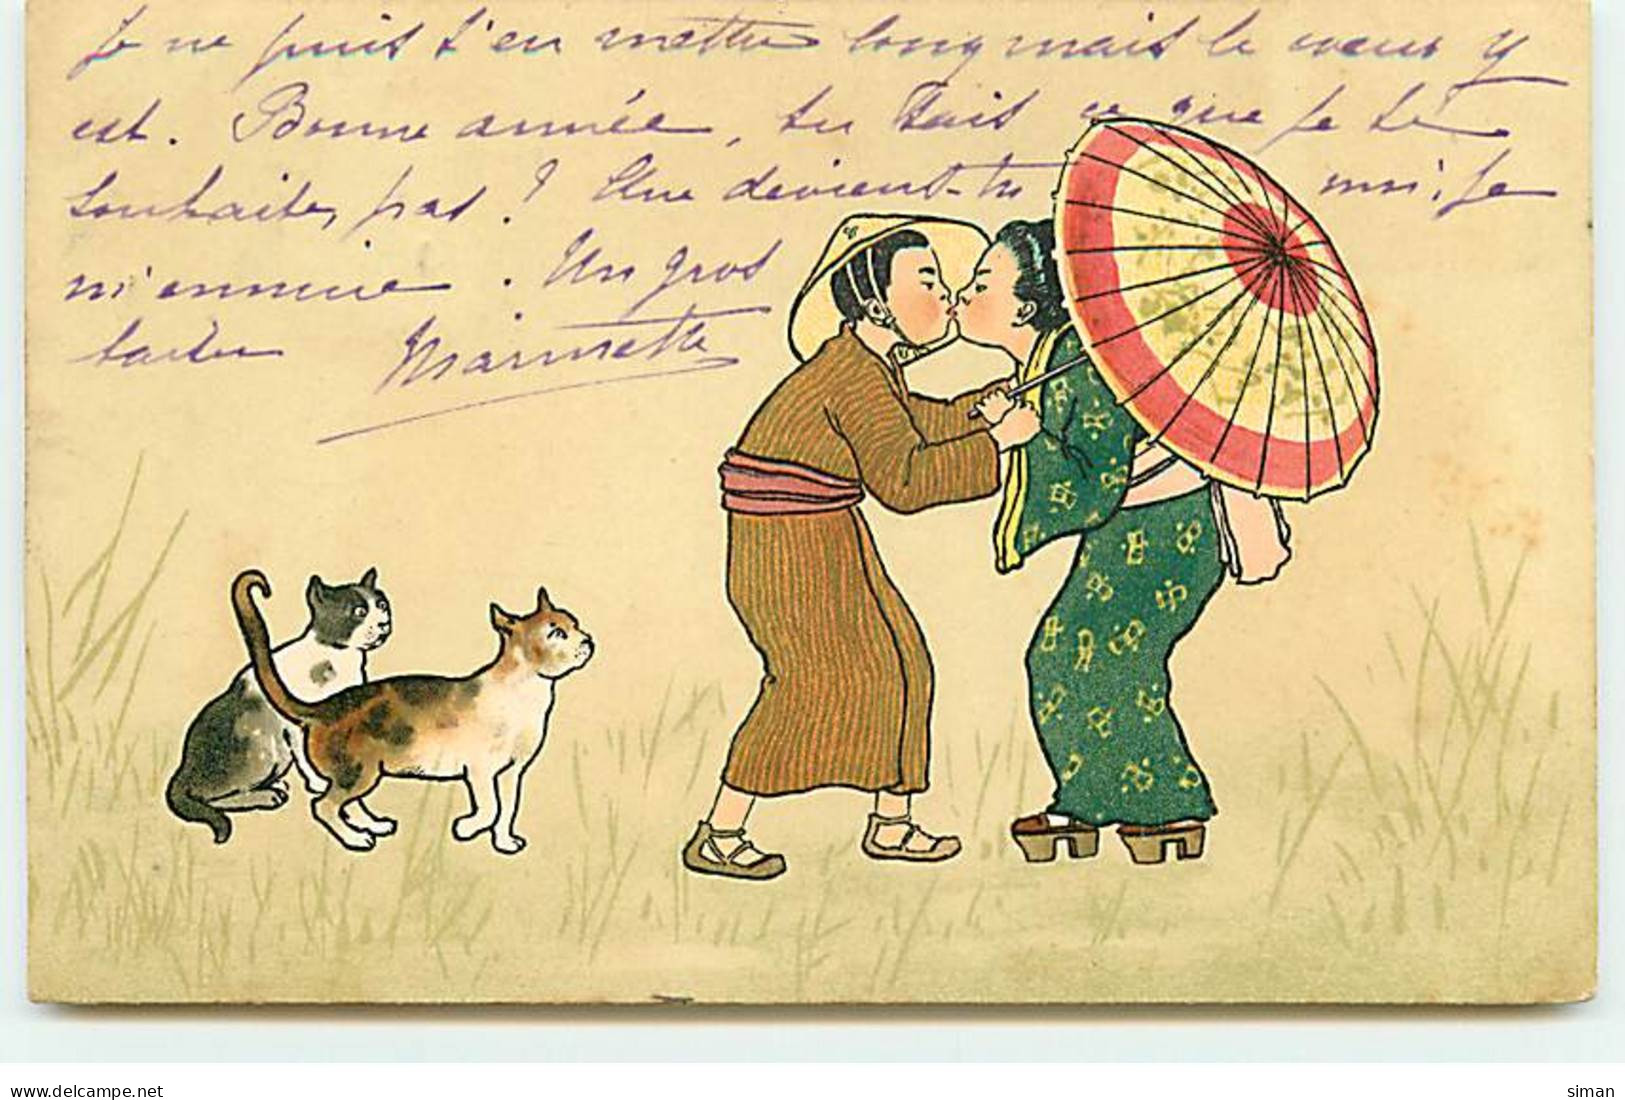 Je ne puis t'en mettre long mais le coeur y
est. Bonne année, tu sais ce que je te
souhaite, pas ? Que devient-tu moi, je
m'ennuie. Un gros
baiser Marinette
delcampe.net
siman